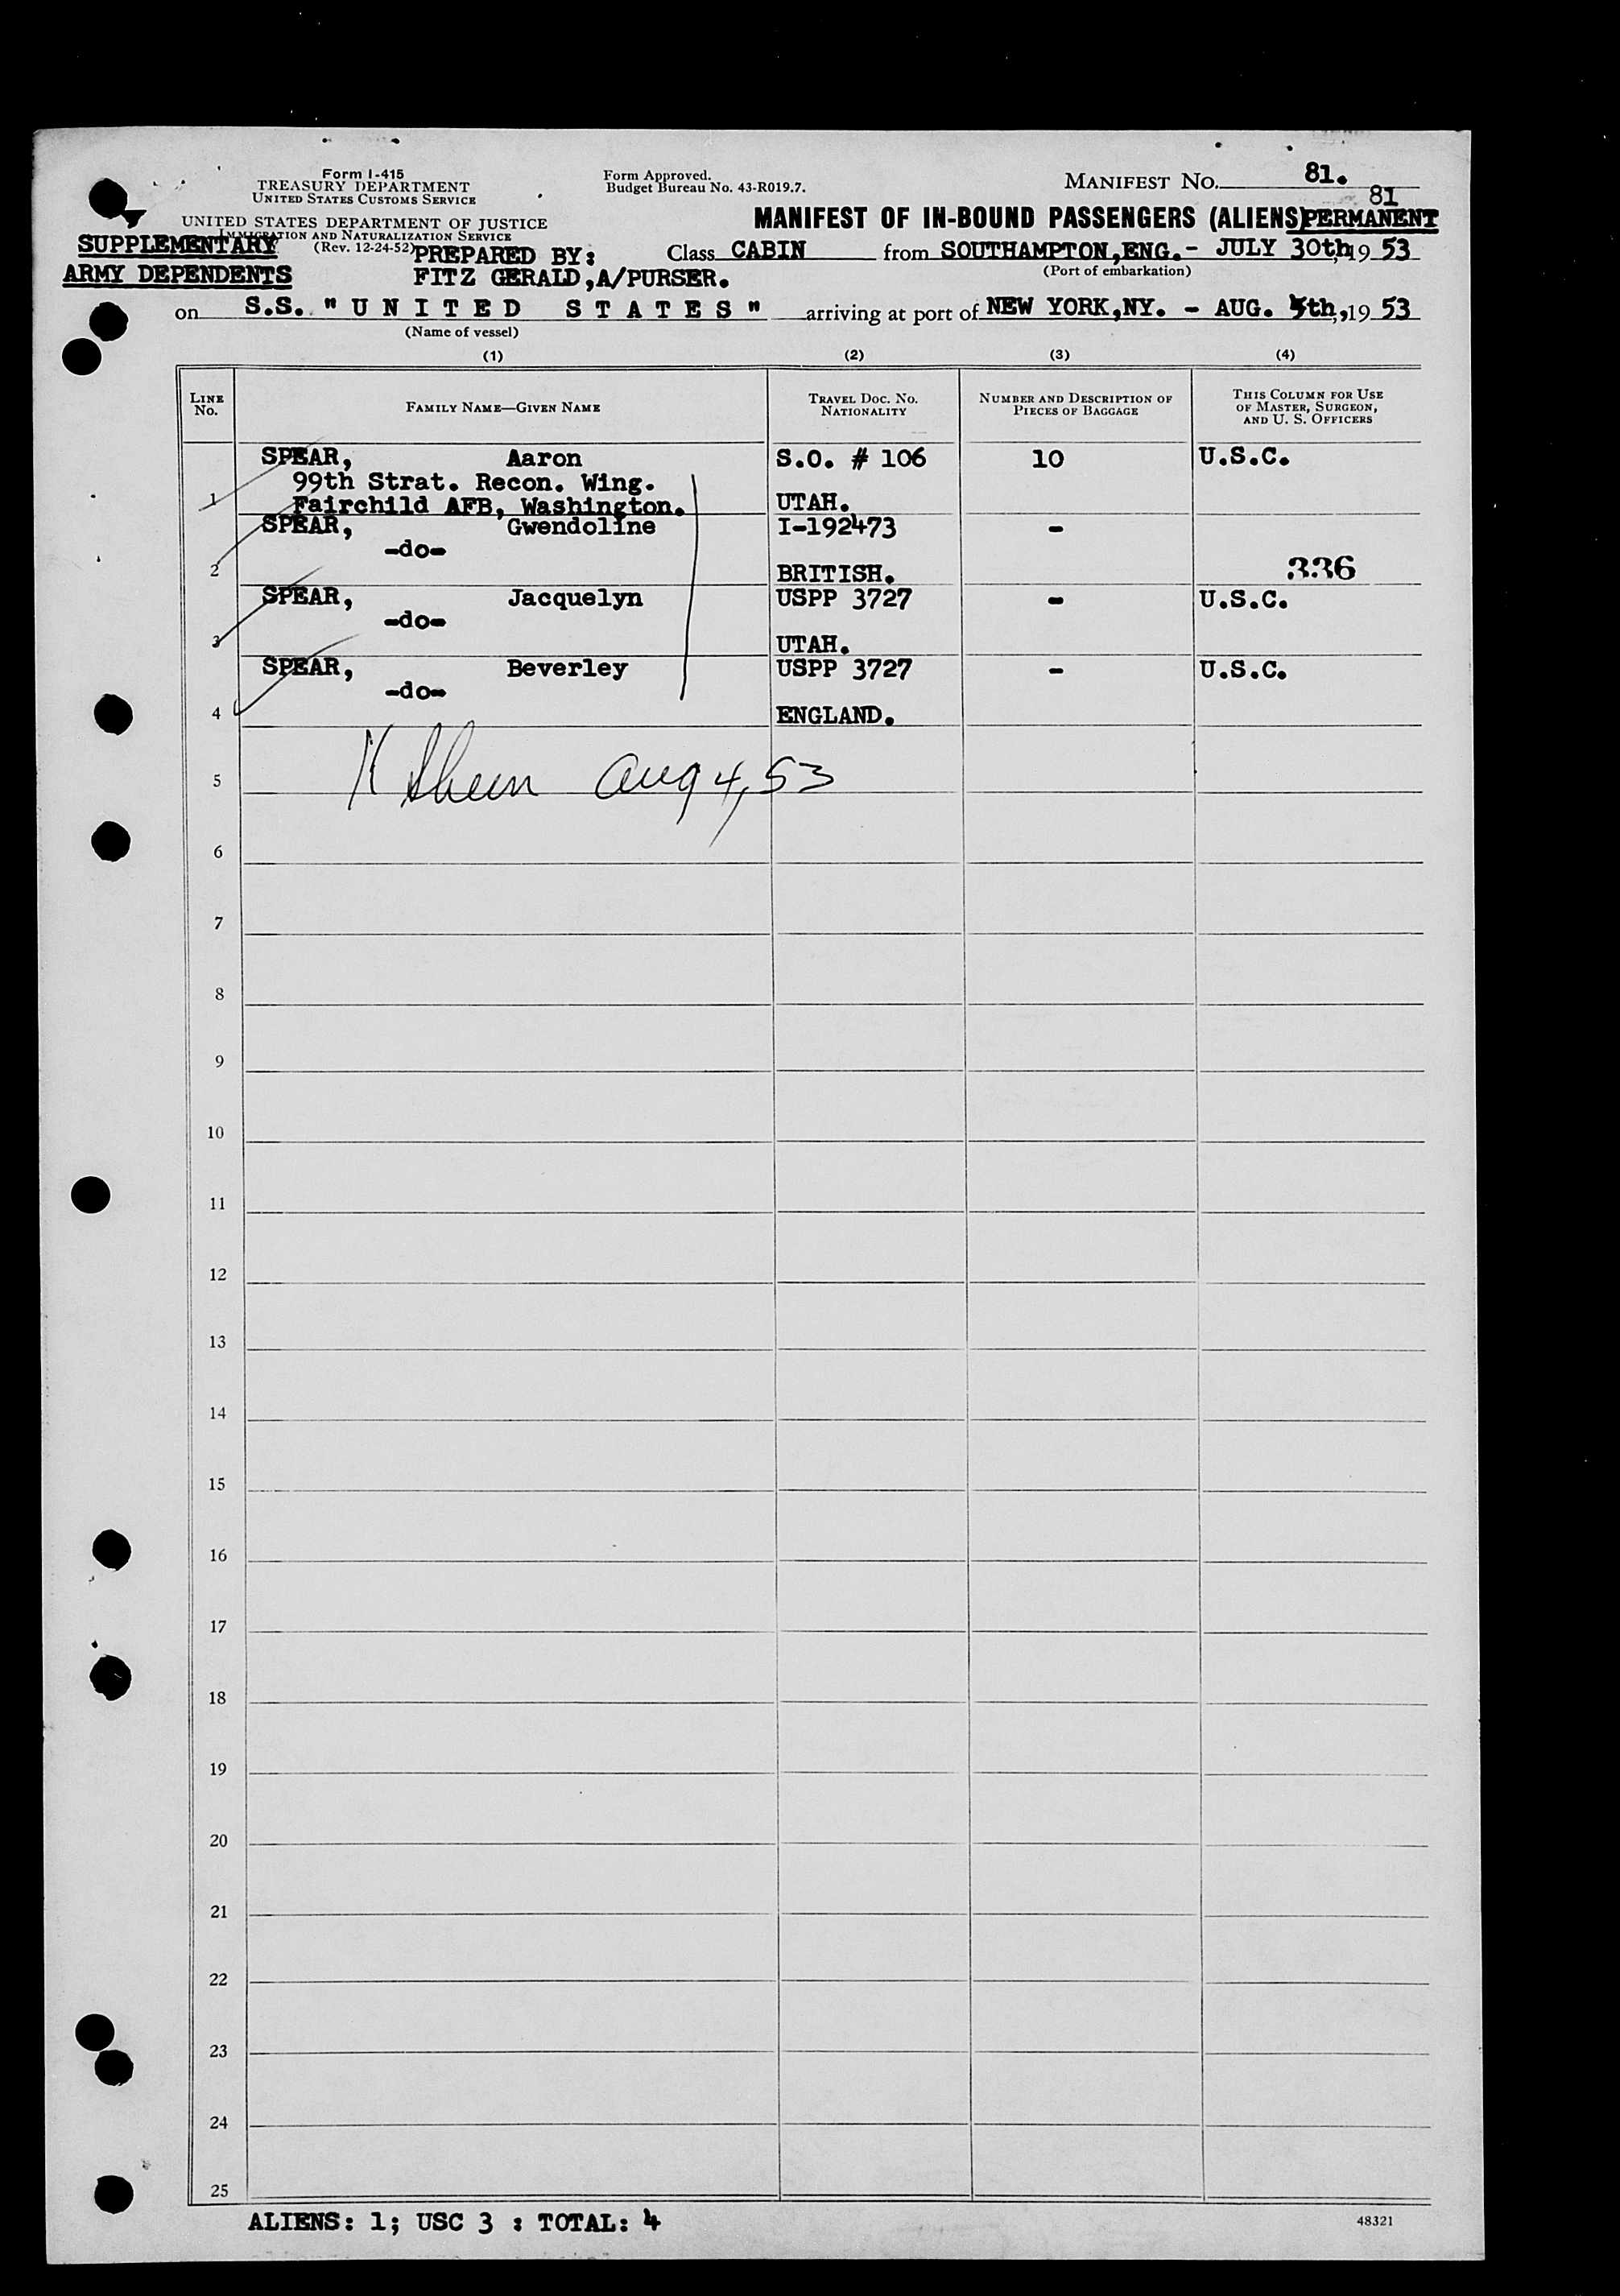 Form I-415
TREASURY DEPARTMENT
UNITED STATES CUSTOMS SERVICE
UNITED STATES DEPARTMENT OF JUSTICE
IMMIGRATION AND NATURALIZATION SERVICE
(Rev. 12-24-52)
Form Approved.
Budget Bureau No. 43-R019.7.
MANIFEST NO. 81.
81
MANIFEST OF IN-BOUND PASSENGERS (ALIENS) PERMANENT
SUPPLEMENTARY
ARMY DEPENDENTS
PREPARED BY:
FITZ GERALD,A/PURSER.
Class CABIN from SOUTHAMPTON,ENG.- JULY 30th, 19 53
(Port of embarkation)
on S.S. "U N I T E D S T A T E S" arriving at port of NEW YORK,NY. - AUG. th,, 19 53
(Name of vessel)
(1) (2) (3) (4)
LINE No. FAMILY NAME—GIVEN NAME TRAVEL DOC. NO. NATIONALITY NUMBER AND DESCRIPTION OF PIECES OF BAGGAGE THIS COLUMN FOR USE OF MASTER, SURGEON, AND U. S. OFFICERS
SPEAR, Aaron S.O. # 106 10 U.S.C.
99th Strat. Recon. Wing.
1 Fairchild AFB, Washington. UTAH.
SPEAR, Gwendoline I-192473 -
-do-
2 BRITISH. 336
SPEAR, Jacquelyn USPP 3727 - U.S.C.
-do-
3 UTAH.
SPEAR, Beverley USPP 3727 - U.S.C.
-do-
4 ENGLAND.
5 Aug 4, 53
6
7
8
9
10
11
12
13
14
15
16
17
18
19
20
21
22
23
24
25
ALIENS: 1; USC 3 : TOTAL: 4
48321